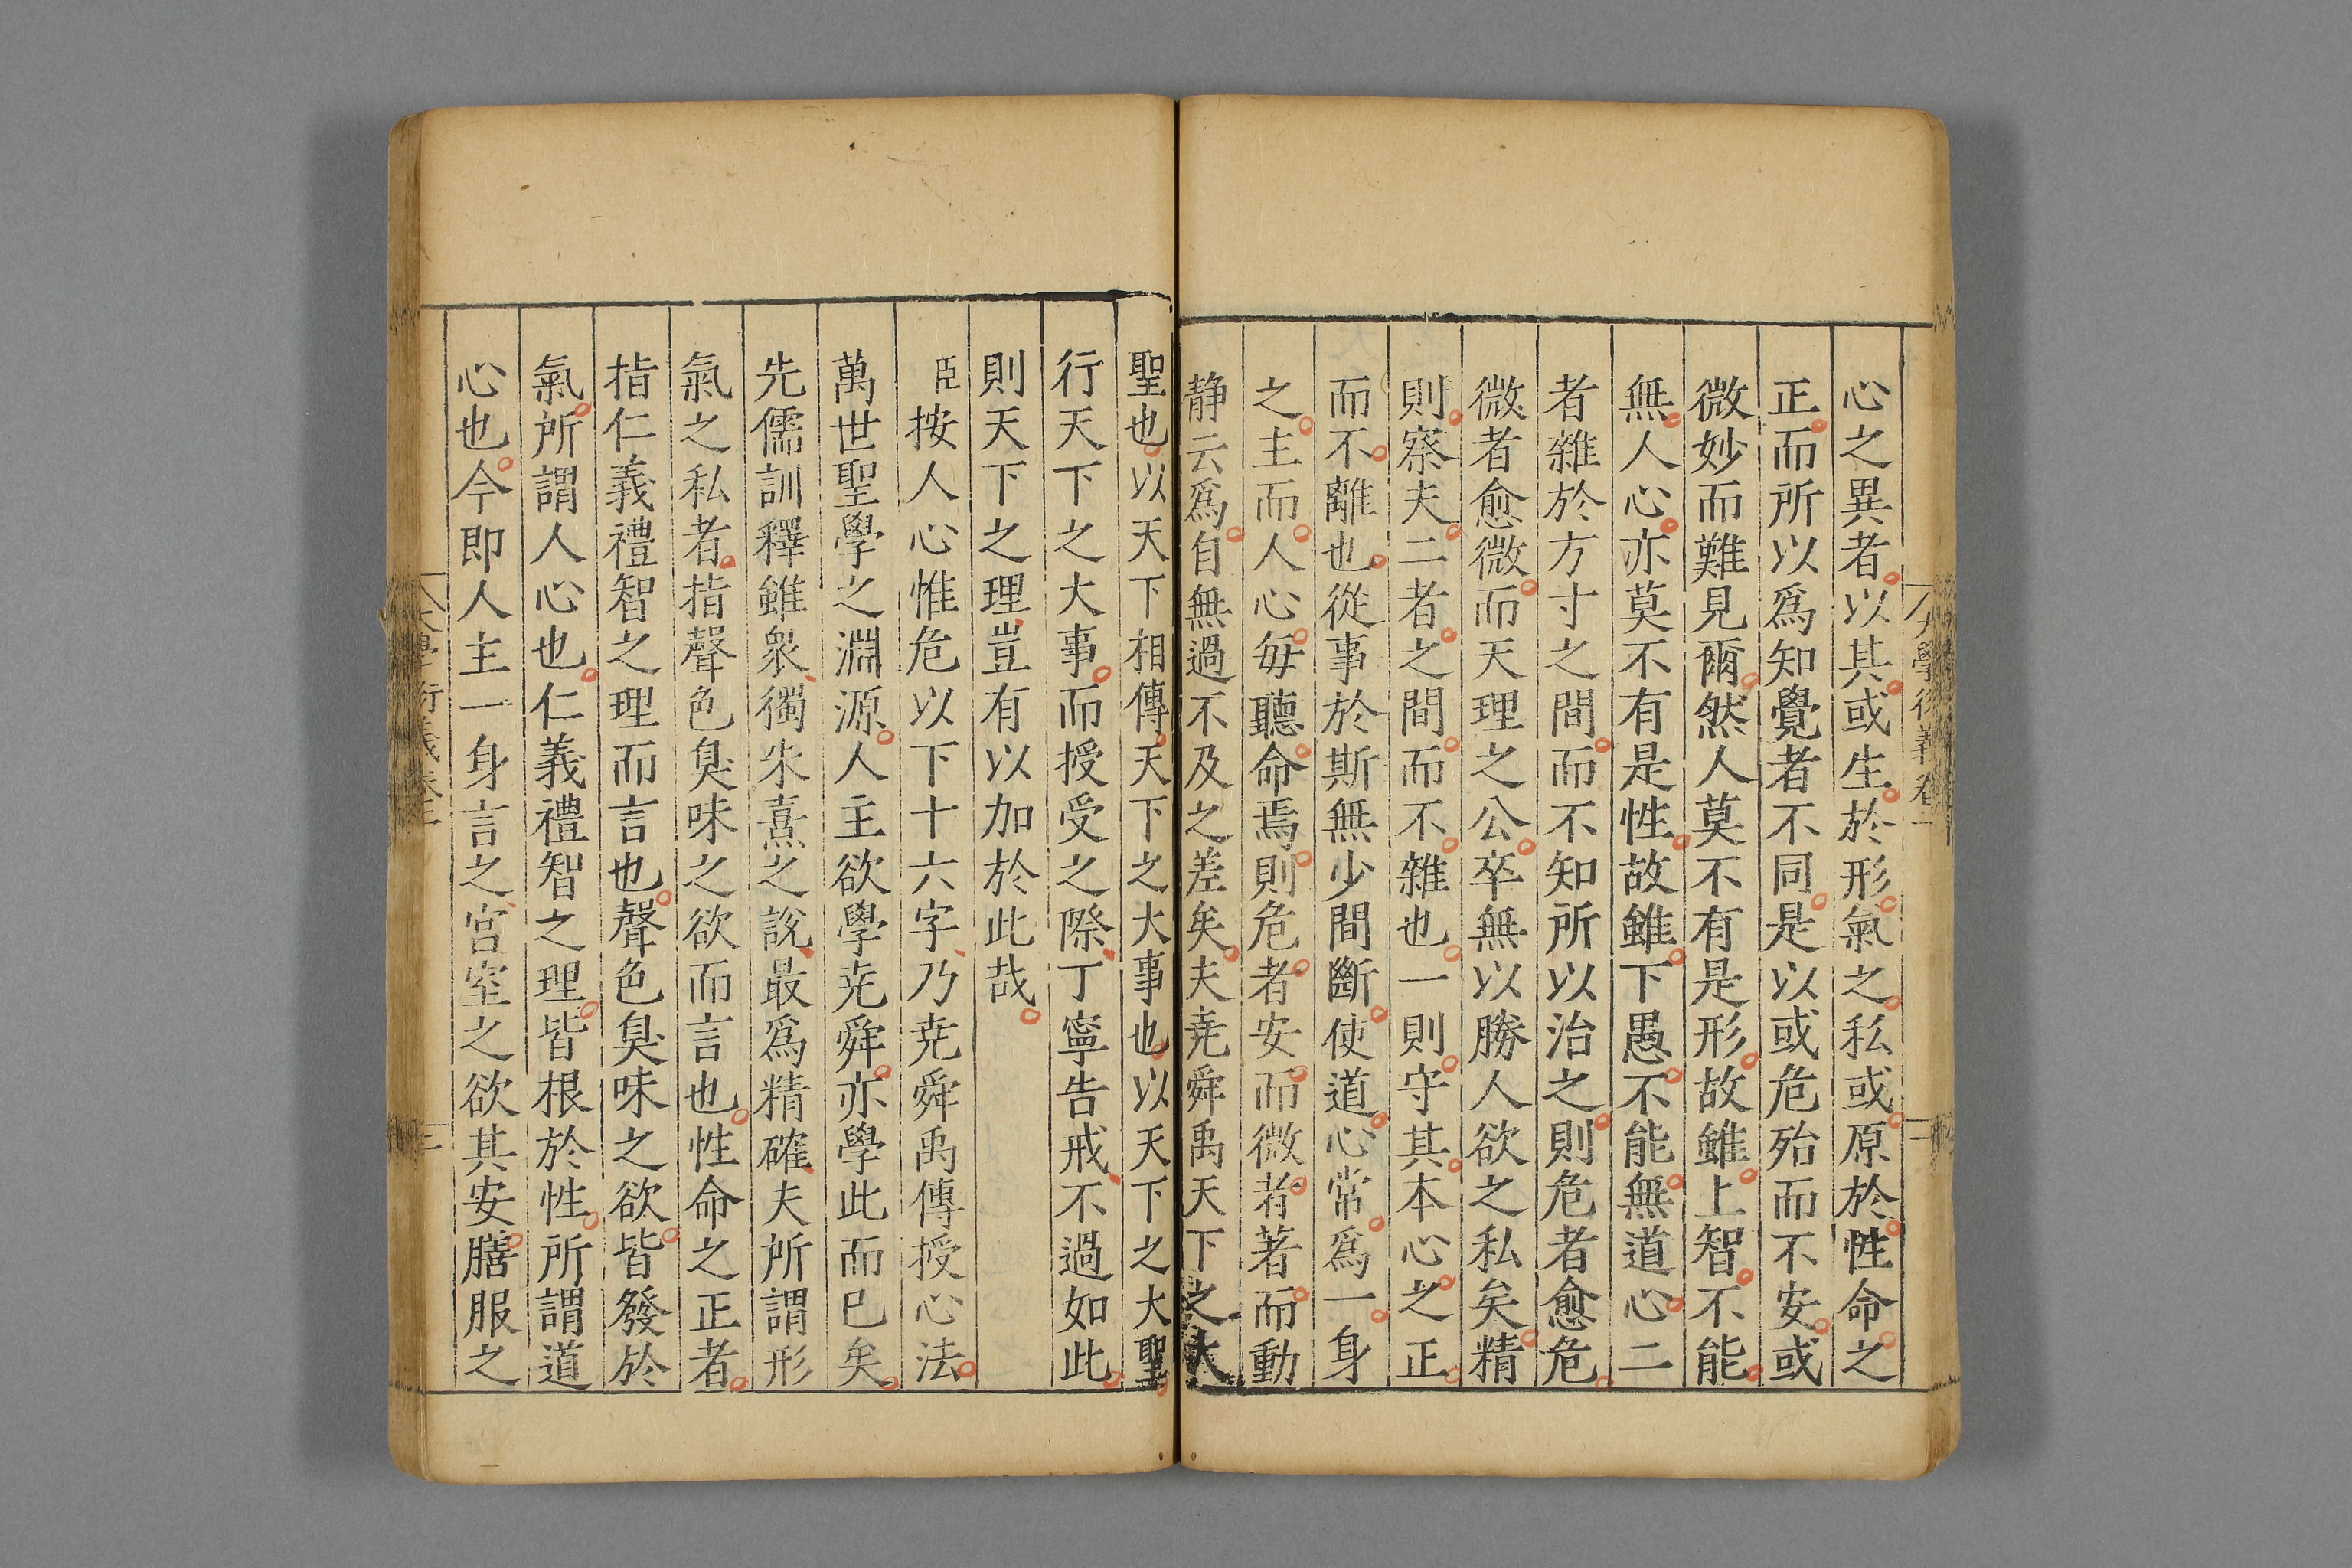 心之異者以其或生於形氣之私或原於性命之
正而所以爲知覺者不同是以或危殆而不安或
微妙而難見爾然人莫不有是形故雖上智不能
無人心亦莫不有是性故雖下愚不能無道心二
者雜於方寸之間而不知所以治之則危者愈危
微者愈微而天理之公卒無以勝人欲之私矣精
則察夫二者之間而不雜也一則守其本心之正
而不離也從事於斯無少間斷使道心常爲一身
之主而人心每聽命焉則危者安而微者著而動
静云爲自無過不及之差矣夫堯舜禹天下之大
聖也以天下相傳天下之大事也以天下之大聖
行天下之大事而授受之際丁寧告戒不過如此
則天下之理豈有以加於此哉
臣按人心惟危以下十六字乃尭舜禹傳授心法
萬世聖學之淵源人主欲學尭舜亦學此而已矣
先儒訓釋雖衆獨朱熹之說最爲精確夫所謂形
氣之私者指聲色臭味之欲而言也性命之正者
指仁義禮智之理而言也聲色臭味之欲皆發於
氣所謂人心也仁義禮智之理皆根於性所謂道
心也今即人主一身言之宮室之欲其安膳服之